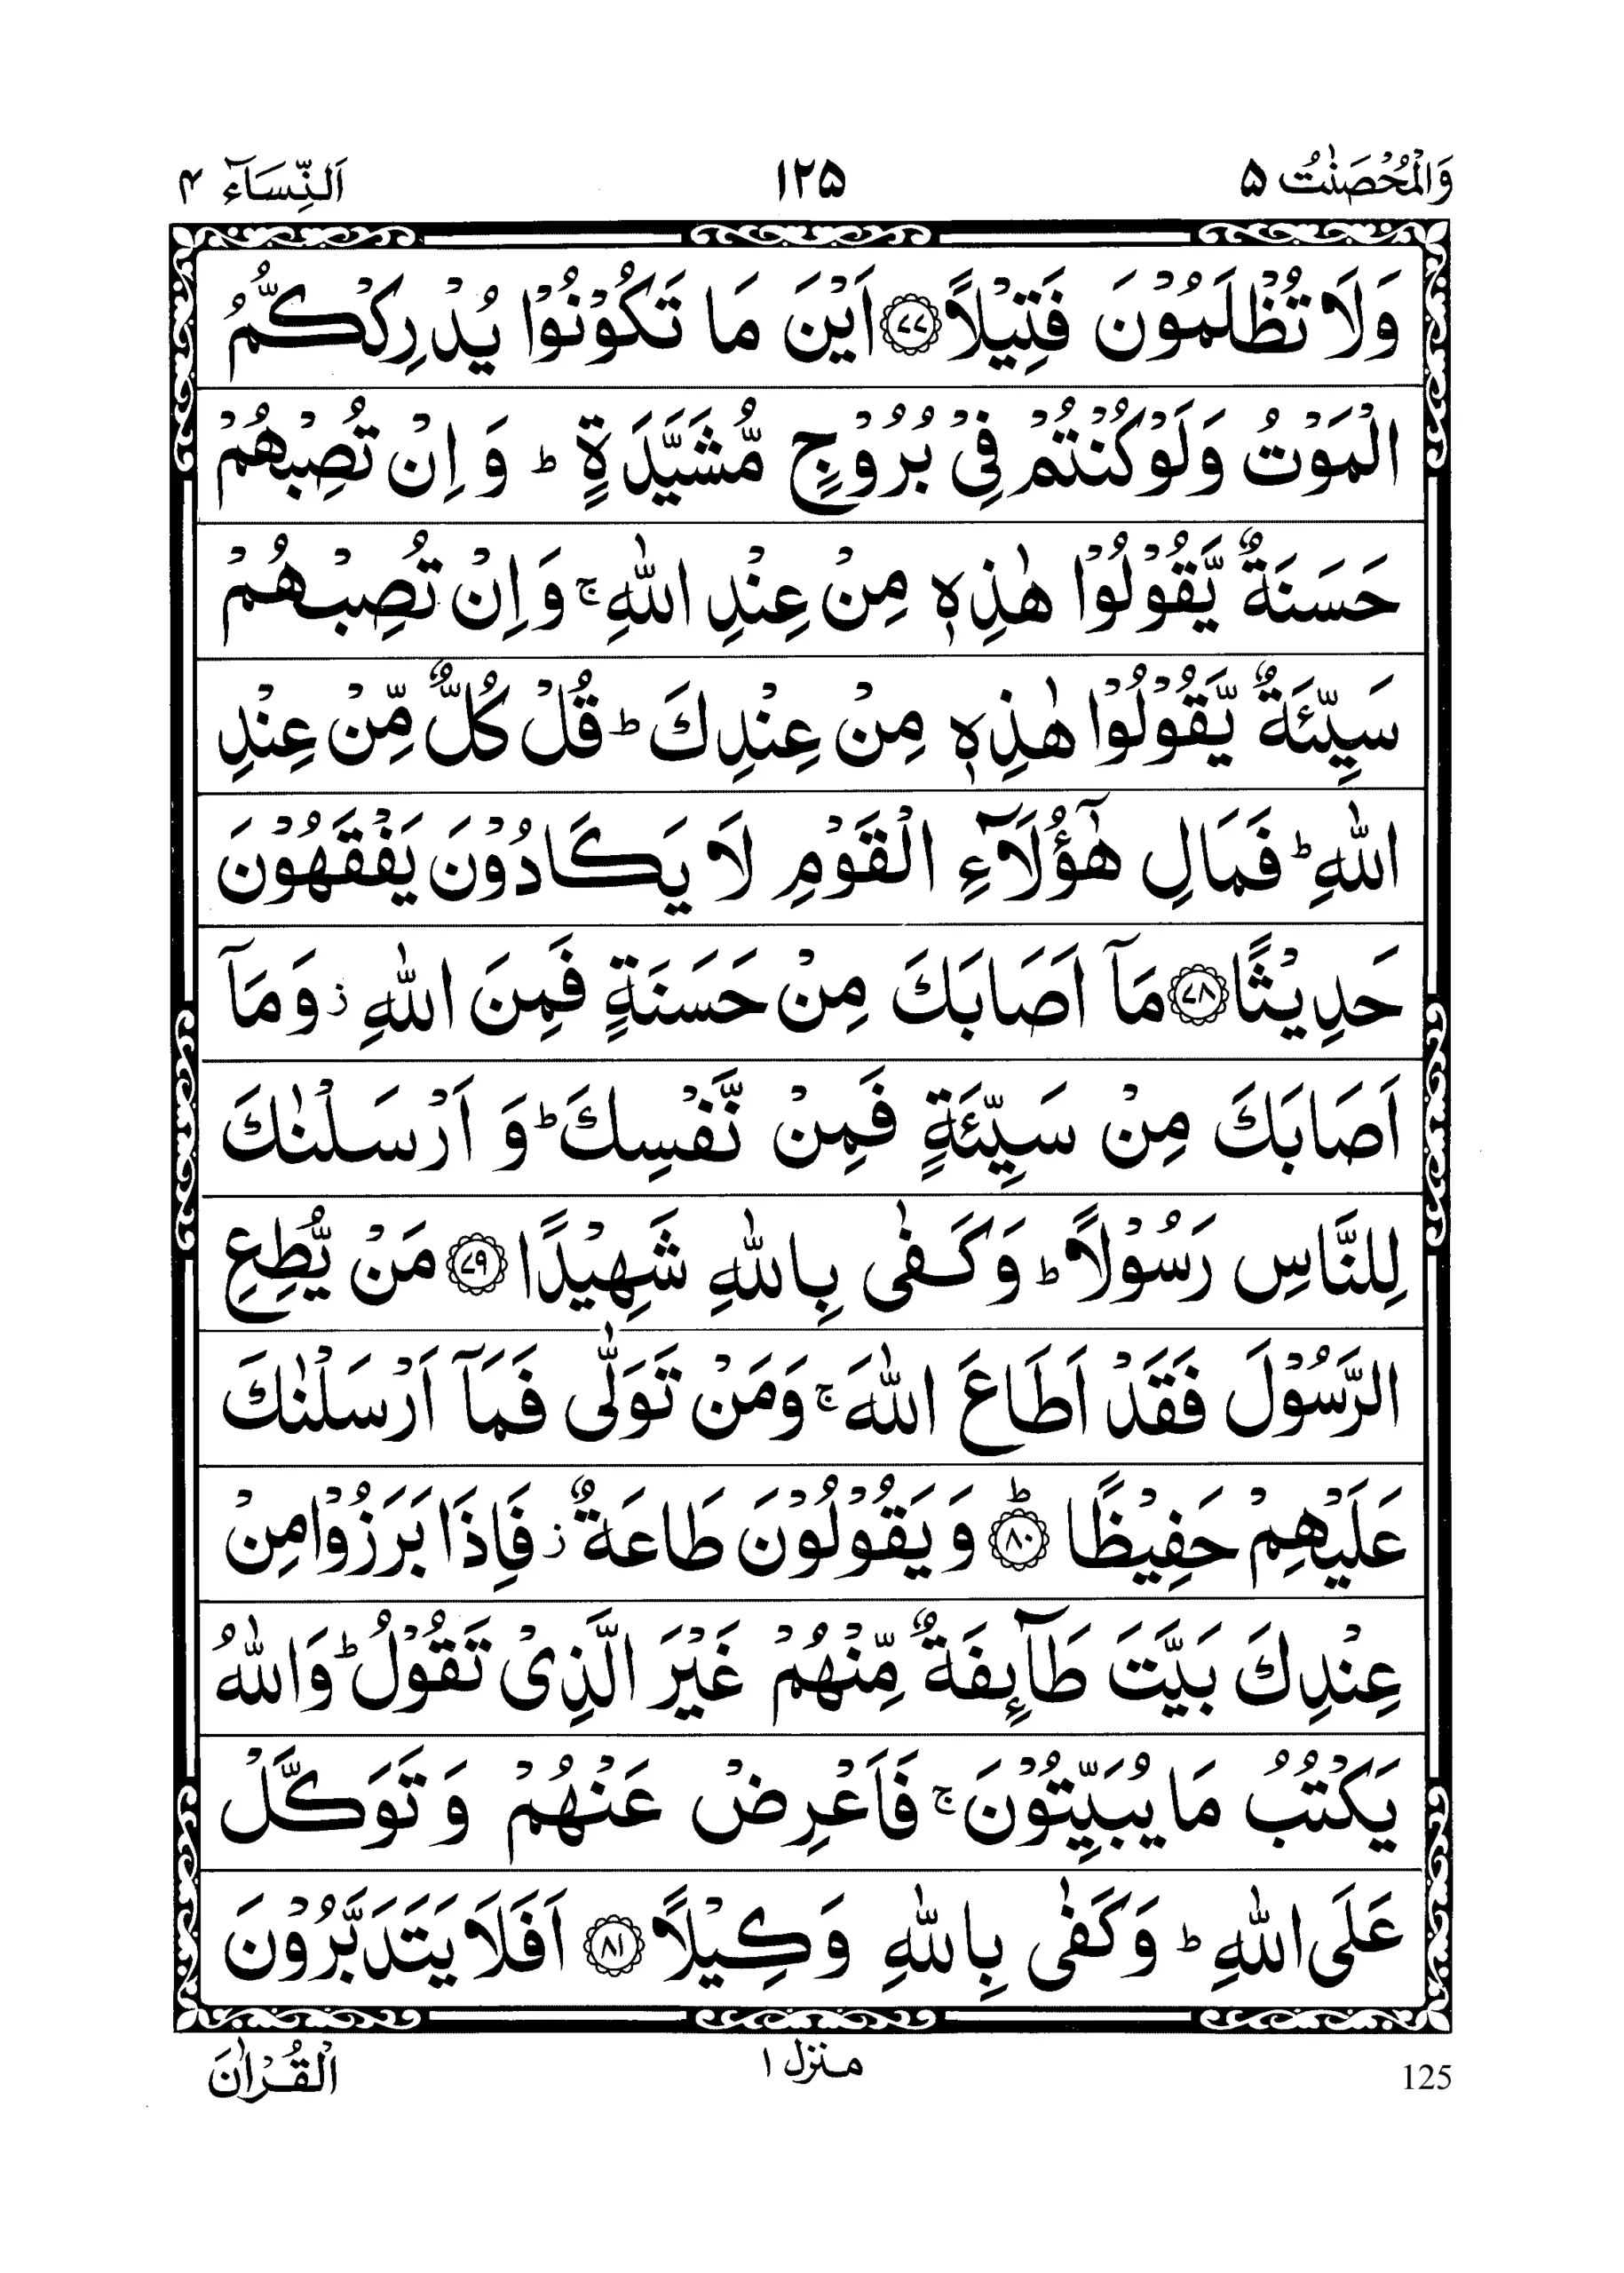 وَالْمُحْصَنٰتُ ۵ ۱۲۵ اَلنِّسَآء ۴
وَلَا تُظْلَمُوْنَ فَتِيْلًا ﴿۷۷﴾ اَيْنَ مَا تَكُوْنُوْا يُدْرِكْكُّمُ
الْمَوْتُ وَلَوْ كُنْتُمْ فِيْ بُرُوْجٍ مُّشَيَّدَةٍ ؕ وَ اِنْ تُصِبْهُمْ
حَسَنَةٌ يَّقُوْلُوْا هٰذِهٖ مِنْ عِنْدِ اللّٰهِ ۚ وَ اِنْ تُصِبْهُمْ
سَيِّئَةٌ يَّقُوْلُوْا هٰذِهٖ مِنْ عِنْدِكَ ؕ قُلْ كُلٌّ مِّنْ عِنْدِ
اللّٰهِ ؕ فَمَالِ هٰٓؤُلَآءِ الْقَوْمِ لَا يَكَادُوْنَ يَفْقَهُوْنَ
حَدِيْثًا ﴿۷۸﴾ مَآ اَصَابَكَ مِنْ حَسَنَةٍ فَمِنَ اللّٰهِ ز وَمَآ
اَصَابَكَ مِنْ سَيِّئَةٍ فَمِنْ نَّفْسِكَ ؕ وَ اَرْسَلْنٰكَ
لِلنَّاسِ رَسُوْلًا ؕ وَكَفٰى بِاللّٰهِ شَهِيْدًا ﴿۷۹﴾ مَنْ يُّطِعِ
الرَّسُوْلَ فَقَدْ اَطَاعَ اللّٰهَ ۚ وَمَنْ تَوَلّٰى فَمَآ اَرْسَلْنٰكَ
عَلَيْهِمْ حَفِيْظًا ﴿۸۰﴾ؕ وَ يَقُوْلُوْنَ طَاعَةٌ ز فَاِذَا بَرَزُوْا مِنْ
عِنْدِكَ بَيَّتَ طَآىِٕفَةٌ مِّنْهُمْ غَيْرَ الَّذِىْ تَقُوْلُ ؕ وَاللّٰهُ
يَكْتُبُ مَا يُبَيِّتُوْنَ ۚ فَاَعْرِضْ عَنْهُمْ وَ تَوَكَّلْ
عَلَى اللّٰهِ ؕ وَكَفٰى بِاللّٰهِ وَكِيْلًا ﴿۸۱﴾ اَفَلَا يَتَدَبَّرُوْنَ
125 منزل ۱ الْقُرْاٰنَ